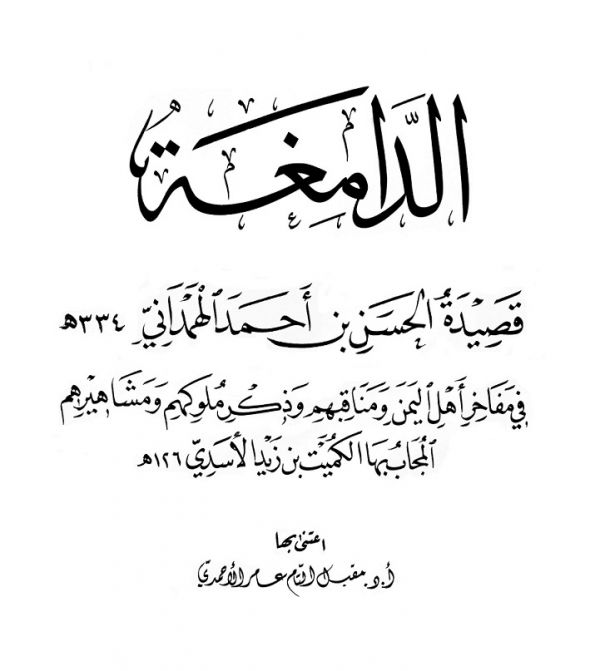 الدَّامِغَةُ
قَصِيْدَةُ الحَسَنِ بن أَحمَدَ الهَمْدَانِيّ ٣٣٤هـ
في مَفَاخِرِ أَهْلِ اليَمَنِ وَمَنَاقِبِهِم وَذِكْرِ مُلوكِهِم وَمَشَاهِيْرِهِم
المُجَابُ بِهَا الكُمَيْتُ بن زَيْد الأَسَدِيّ ١٢٦هـ
اعتنى بها
أ.د. مقبل التام عامر الأحمدي